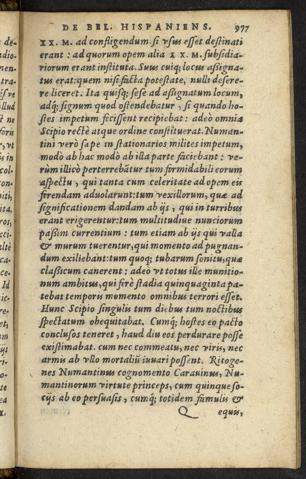 DE BEL. HISPANIENS. 977
XX. M. ad confligendum. si vsus esset destinati
erant: ad quorum opem alia XX. M. subsidia-
riorum erant instituta. Suus cuiq; locus assigna-
tus erat: quem nisi facta potestate, nulli desere-
re liceret. Ita quisq; sese ad assignatum locum,
adq; signum quod ostendebatur, si quando ho-
stes impetum fecissent recipiebat: adeò omnia
Scipio rectè atque ordine constituerat. Numan-
tini verò sæpe in stationarios milites impetum,
modò ab hac modò ab illa parte faciebant: ve-
rùm illicò perterrebātur tum formidabili eorum
aspectu, qui tanta cum celeritate ad opem eis
firendam aduolarunt: tum vexillorum, quæ ad
significationem dandam ab ijs, qui in turribus
erant erigerentur: tum multitudine nunciorum
passim currentium: tum etiam ab ijs qui valla
& murum tuerentur, qui momento ad pugnan-
dum exiliebant: tum quoq; tubarum sonitu, quæ
classicum canerent: adeò vt totus ille munitio-
num ambitus, qui ferè stadia quinquaginta pa-
tebat temporis momento omnibus terrori esset.
Hunc Scipio singulis tum diebus tum noctibus
spectatum obequitabat. Cumq; hostes eo pacto
conclusos teneret, haud diu eos perdurare posse
existimabat. cum nec commeatu, nec viris, nec
armis ab vllo mortaliū iuuari possent. Ritoge-
nes Numantinus cognomento Carauinus, Nu-
mantinorum virtute princeps, cum quinque so-
cijs ab eo persuasis, cumq; totidem famulis &
Q equis,